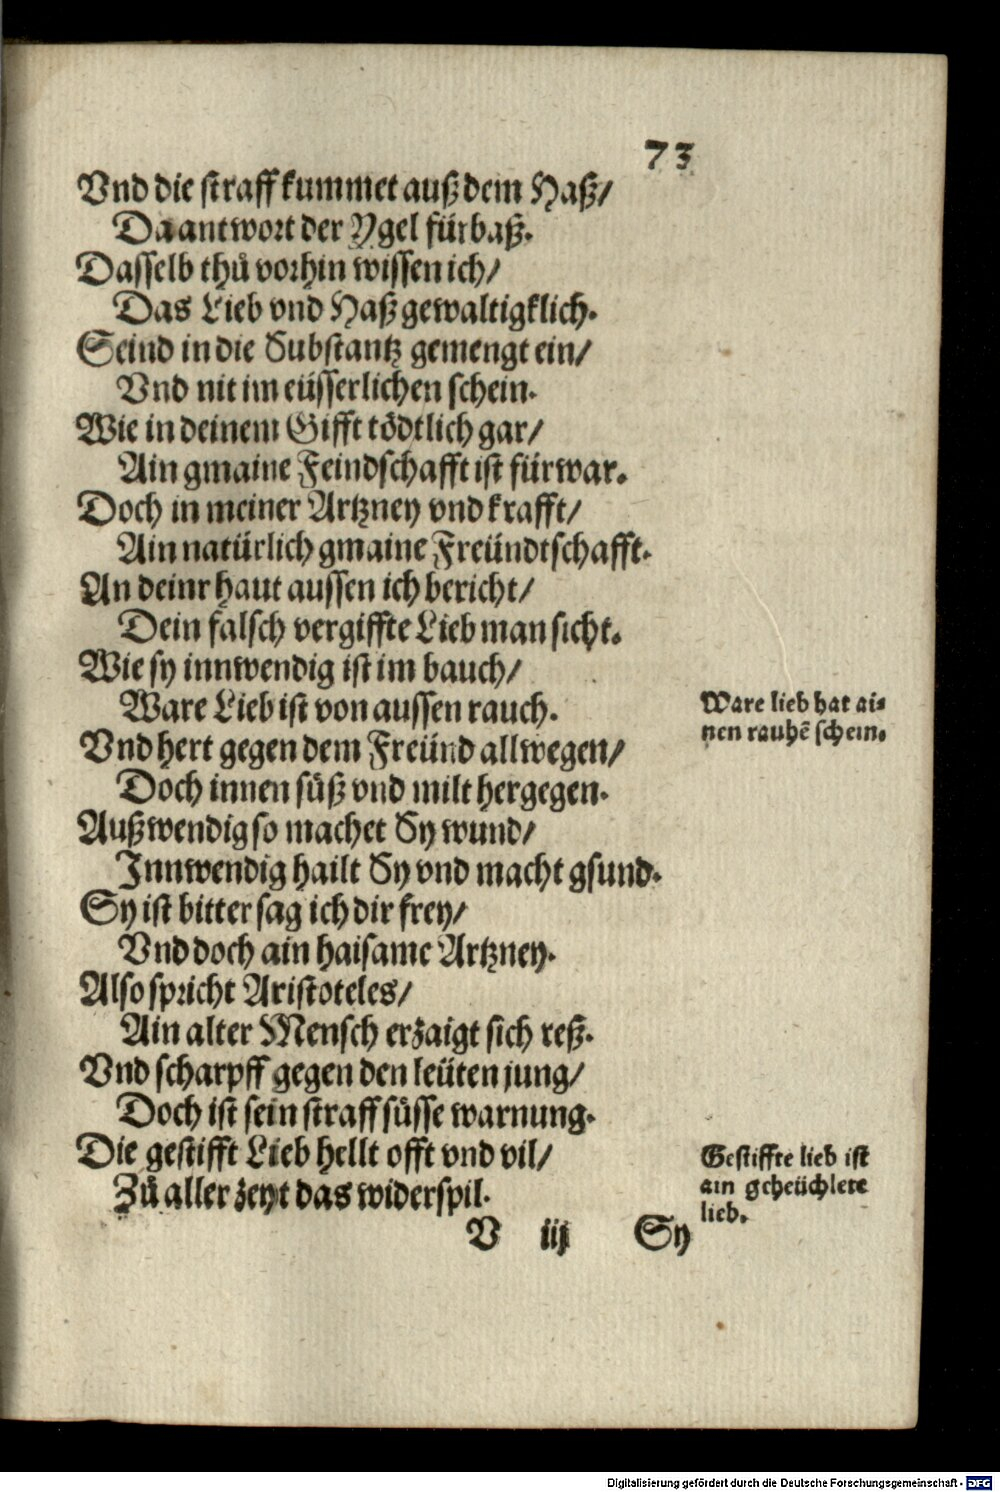 73
Vnd die straff kummet auß dem Haß/
Da antwort der Ygel fürbaß.
Dasselb thů vorhin wissen ich/
Das Lieb vnd Haß gewaltigklich.
Seind in die Substantz gemengt ein/
Vnd nit im eüsserlichen schein.
Wie in deinem Gifft tödtlich gar/
Ain gmaine Feindschafft ist fürwar.
Doch in meiner Artzney vnd krafft/
Ain natürlich gmaine Freündtschafft.
An deinr haut aussen ich bericht/
Dein falsch vergiffte Lieb man sicht.
Wie sy innwendig ist im bauch/
Ware Lieb ist von aussen rauch.
Ware lieb hat ai-
nen rauhẽ schein.
Vnd hert gegen dem Freünd allwegen/
Doch innen süß vnd milt hergegen.
Außwendig so machet Sy wund/
Innwendig hailt Sy vnd macht gsund.
Sy ist bitter sag ich dir frey/
Vnd doch ain haisame Artzney.
Also spricht Aristoteles/
Ain alter Mensch erzaigt sich reß.
Vnd scharpff gegen den leüten jung/
Doch ist sein straff süsse warnung.
Die gestifft Lieb hellt offt vnd vil/
Zů aller zeyt das widerspil.
Gestiffte lieb ist
ain geheüchlete
lieb.
V iij Sy
Digitalisierung gefördert durch die Deutsche Forschungsgemeinschaft - DFG